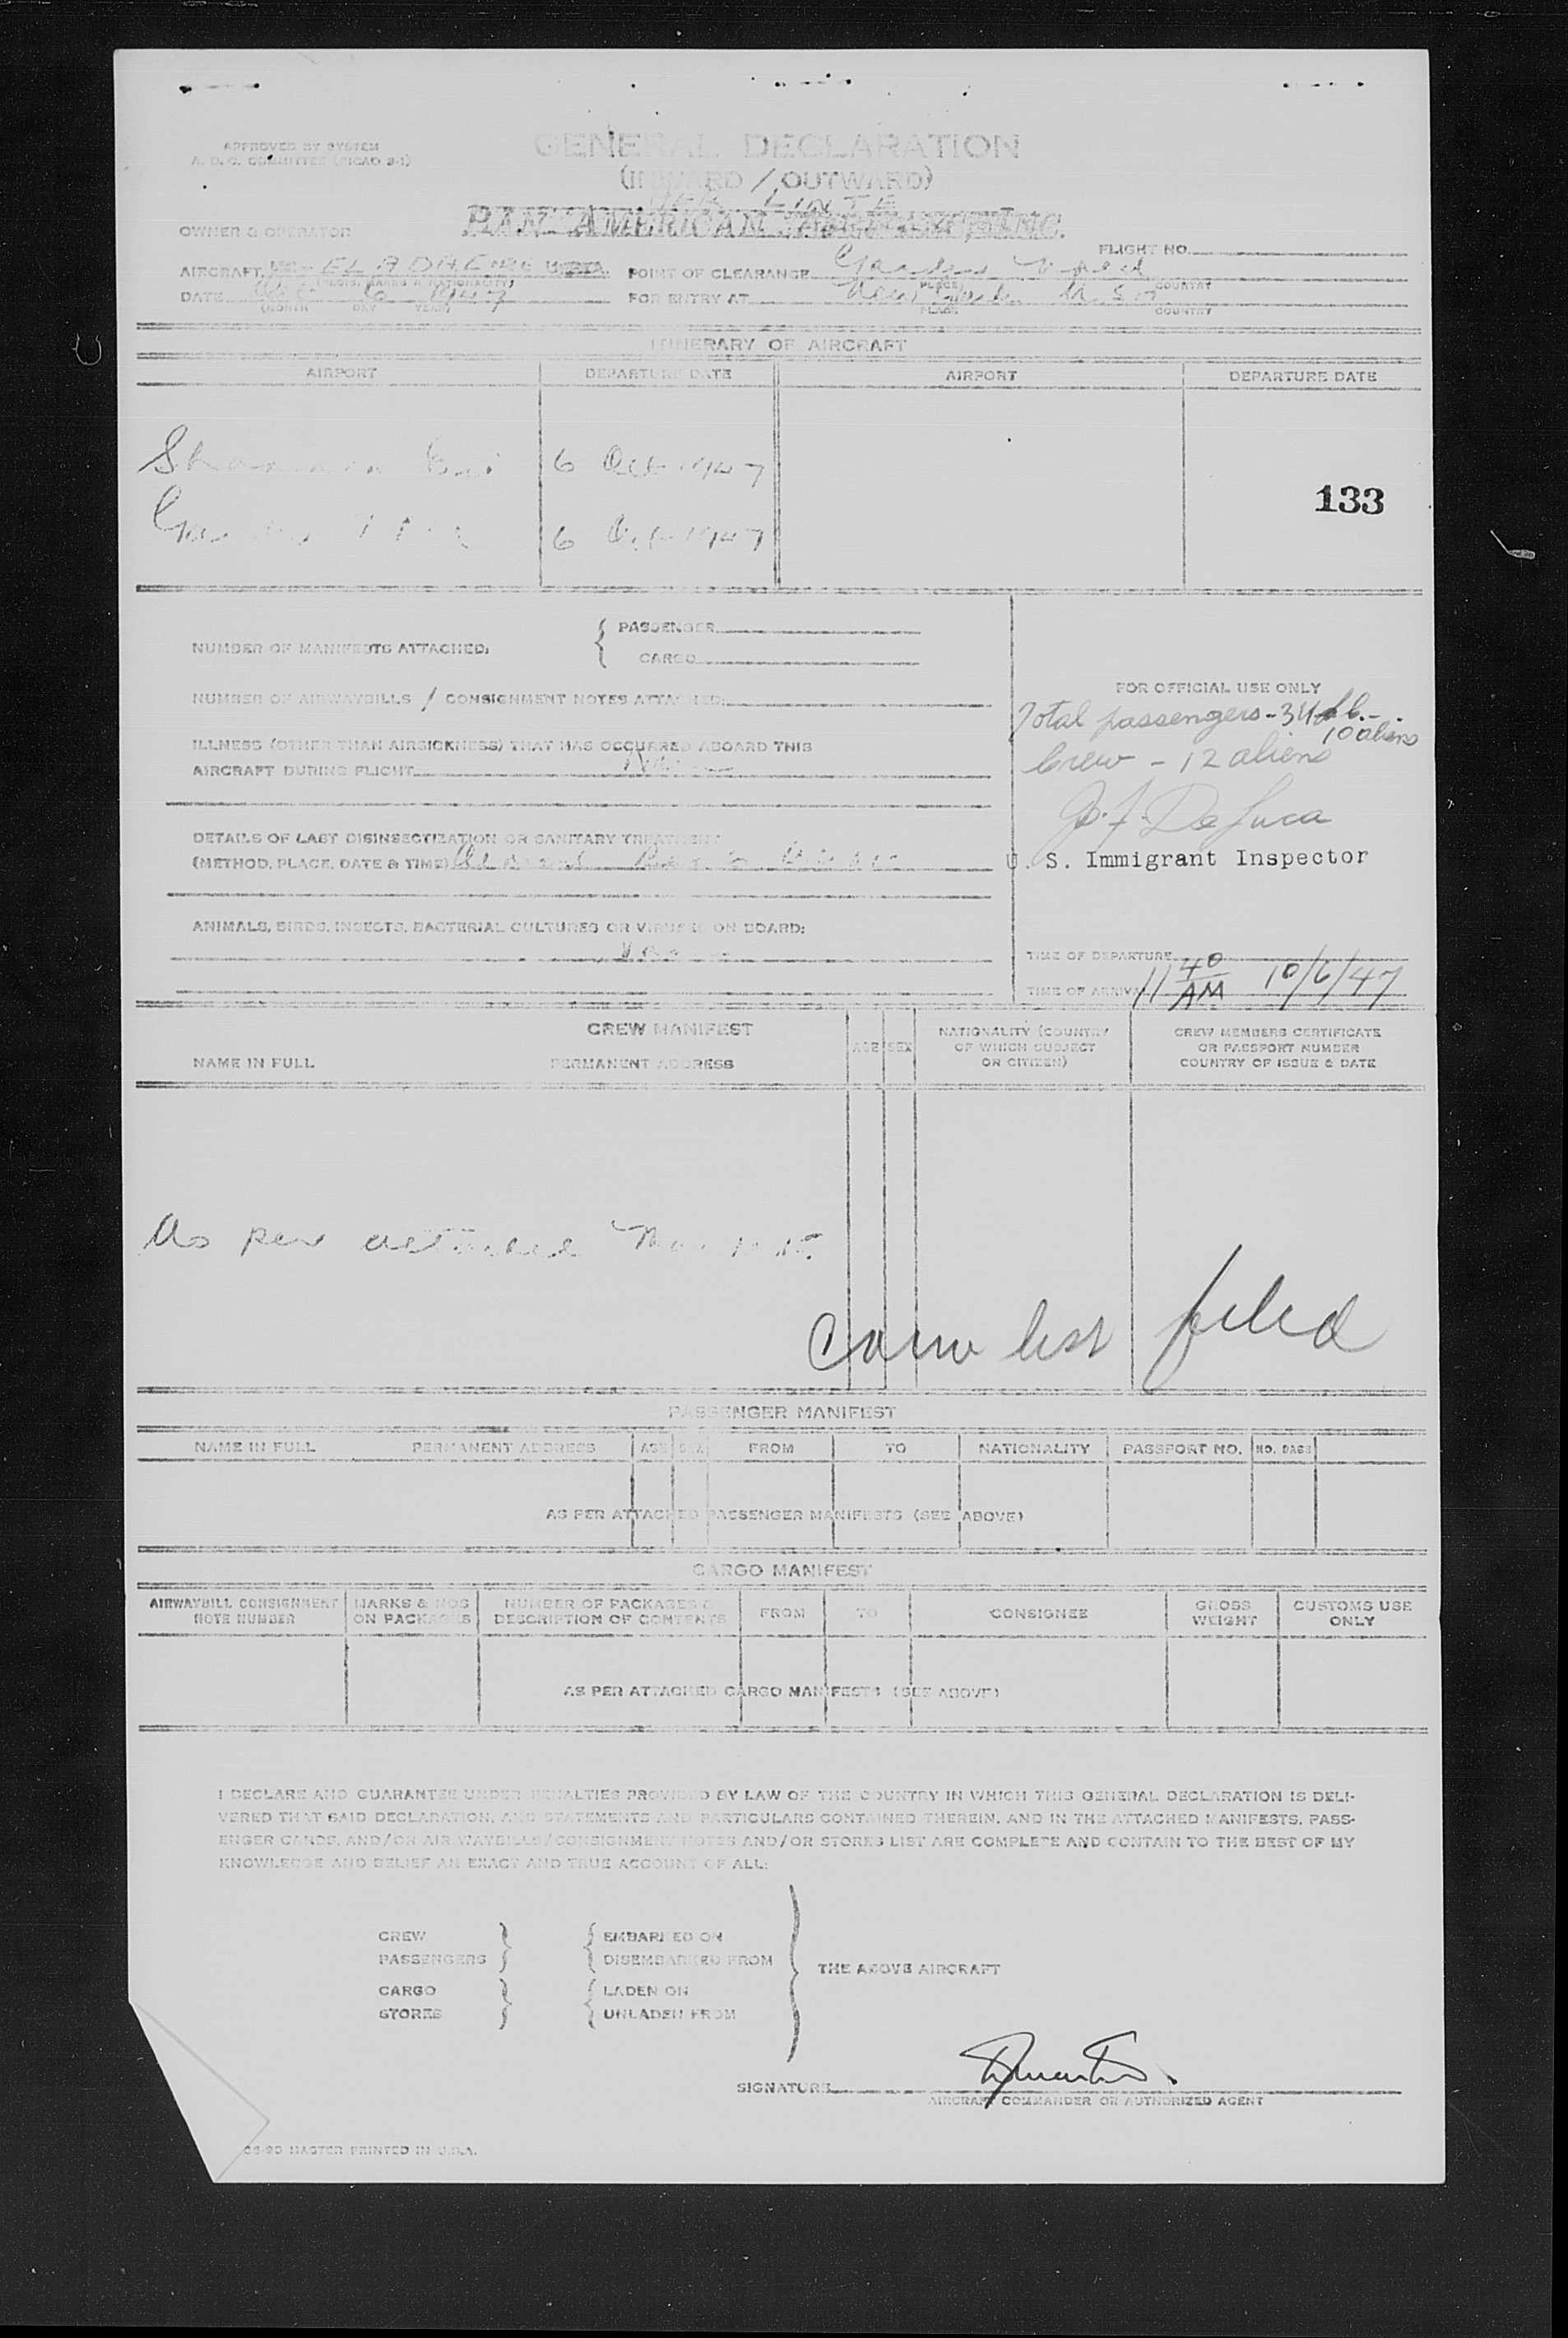 APPROVED BY SYSTEM
A. D. C. COMMITTEE (PICAO 2-1)
GENERAL DECLARATION
(INWARD / OUTWARD)
PAN AMERICAN AIRWAYS, INC.
OWNER & OPERATOR
FLIGHT NO.
AIRCRAFT EI ADH EIRE
POINT OF CLEARANCE Gander Nfld
(REGIS. MARKS & NATIONALITY) PLACE) COUNTRY
DATE Oct 6 1947 FOR ENTRY AT New York U.S.A
(MONTH DAY YEAR) PLACE COUNTRY
ITINERARY OF AIRCRAFT
AIRPORT DEPARTURE DATE AIRPORT DEPARTURE DATE
Shannon 6 Oct 1947
133
Gander 6 Oct 1947
NUMBER OF MANIFESTS ATTACHED: { PASSENGER
CARGO
NUMBER OF AIRWAYBILLS / CONSIGNMENT NOTES ATTACHED:
FOR OFFICIAL USE ONLY
Total passengers - 34
10 aliens
Crew - 12 aliens
ILLNESS (OTHER THAN AIRSICKNESS) THAT HAS OCCURRED ABOARD THIS
AIRCRAFT DURING FLIGHT None
J. F. DeLuca
U. S. Immigrant Inspector
DETAILS OF LAST DISINSECTIZATION OR SANITARY TREATMENT
(METHOD, PLACE, DATE & TIME)
ANIMALS, BIRDS, INSECTS, BACTERIAL CULTURES OR VIRUSES ON BOARD:
None
TIME OF DEPARTURE
TIME OF ARRIVAL 11 40 AM 10/6/47
CREW MANIFEST
NAME IN FULL PERMANENT ADDRESS AGE SEX NATIONALITY (COUNTRY OF WHICH SUBJECT OR CITIZEN) CREW MEMBERS CERTIFICATE OR PASSPORT NUMBER COUNTRY OF ISSUE & DATE
As per attached
list filed
PASSENGER MANIFEST
NAME IN FULL PERMANENT ADDRESS AGE SEX FROM TO NATIONALITY PASSPORT NO. NO. BAGS
AS PER ATTACHED PASSENGER MANIFESTS (SEE ABOVE)
CARGO MANIFEST
AIRWAYBILL CONSIGNMENT NOTE NUMBER MARKS & NOS ON PACKAGES NUMBER OF PACKAGES & DESCRIPTION OF CONTENTS FROM TO CONSIGNEE GROSS WEIGHT CUSTOMS USE ONLY
AS PER ATTACHED CARGO MANIFESTS (SEE ABOVE)
I DECLARE AND GUARANTEE UNDER PENALTIES PROVIDED BY LAW OF THE COUNTRY IN WHICH THIS GENERAL DECLARATION IS DELI-
VERED THAT SAID DECLARATION, AND STATEMENTS AND PARTICULARS CONTAINED THEREIN, AND IN THE ATTACHED MANIFESTS, PASS-
ENGER CARDS, AND/OR AIR WAYBILLS/CONSIGNMENT NOTES AND/OR STORES LIST ARE COMPLETE AND CONTAIN TO THE BEST OF MY
KNOWLEDGE AND BELIEF AN EXACT AND TRUE ACCOUNT OF ALL:
CREW } { EMBARKED ON
PASSENGERS DISEMBARKED FROM
THE ABOVE AIRCRAFT
CARGO } { LADEN ON
STORES UNLADEN FROM
SIGNATURE
AIRCRAFT COMMANDER OR AUTHORIZED AGENT
MASTER PRINTED IN U.S.A.